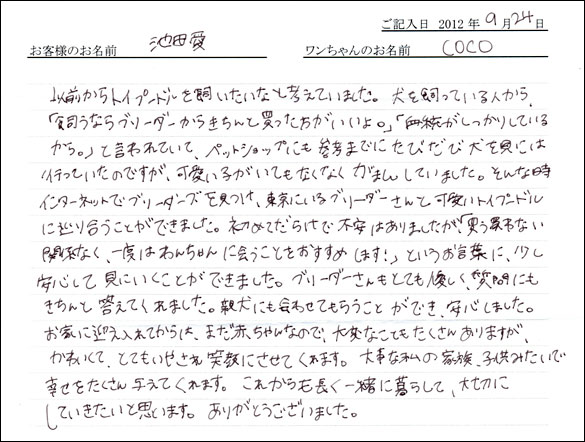 ご記入日 2012 年 9月 24日
お客様のお名前 池田愛 ワンちゃんのお名前 COCO
以前からトイプードルを飼いたいなと考えていました。犬を飼っている人から、
「飼うならブリーダーからきちんと買った方がいいよ。」「血統がしっかりしている
から。」と言われていて、ペットショップにも参考までにたびたび犬を見には
行っていたのですが、可愛い子がいてもなくなくがまんしていました。そんな時
インターネットでブリーダーズを見つけ、東京にいるブリーダーさんと可愛いトイプードル
に巡り合うことができました。初めてだらけで不安はありましたが、「買う買わない
関係なく、一度はわんちゃんに会うことをおすすめします!」というお言葉に、少し
安心して見にいくことができました。ブリーダーさんもとても優しく、質問にも
きちんと答えてくれました。親犬にも会わせてもらうことができ、安心しました。
お家に迎え入れてからは、まだ赤ちゃんなので、大変なこともたくさんありますが、
かわいくて、とてもいやされ笑顔にさせてくれます。大事な私の家族、子供みたいで
幸せをたくさん与えてくれます。これからも長く一緒に暮らして、大切に
していきたいと思います。ありがとうございました。